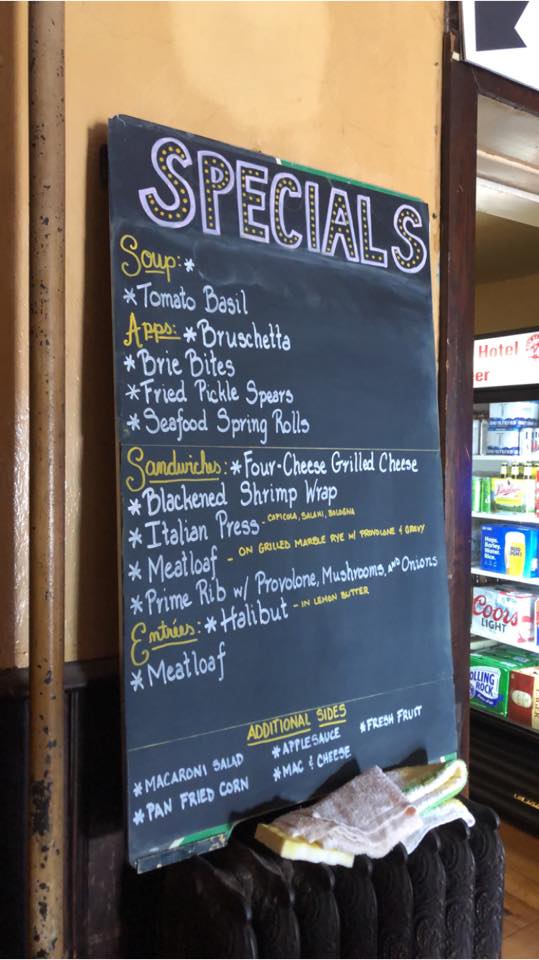 SPECIALS
Soup: *
* Tomato Basil
Apps: * Bruschetta
* Brie Bites
* Fried Pickle Spears
* Seafood Spring Rolls
Sandwiches: * Four-Cheese Grilled Cheese
* Blackened Shrimp Wrap
* Italian Press - CAPICOLA, SALAMI, BOLOGNA
* Meatloaf - ON GRILLED MARBLE RYE W/ PROVOLONE & GRAVY
* Prime Rib w/ Provolone, Mushrooms, AND Onions
Entrées: * Halibut - IN LEMON BUTTER
* Meatloaf
ADDITIONAL SIDES
* MACARONI SALAD * APPLESAUCE * FRESH FRUIT
* PAN FRIED CORN * MAC & CHEESE
Hotel
er
Hops.
Barley.
Water.
Coors
LIGHT
OLLING
ROCK